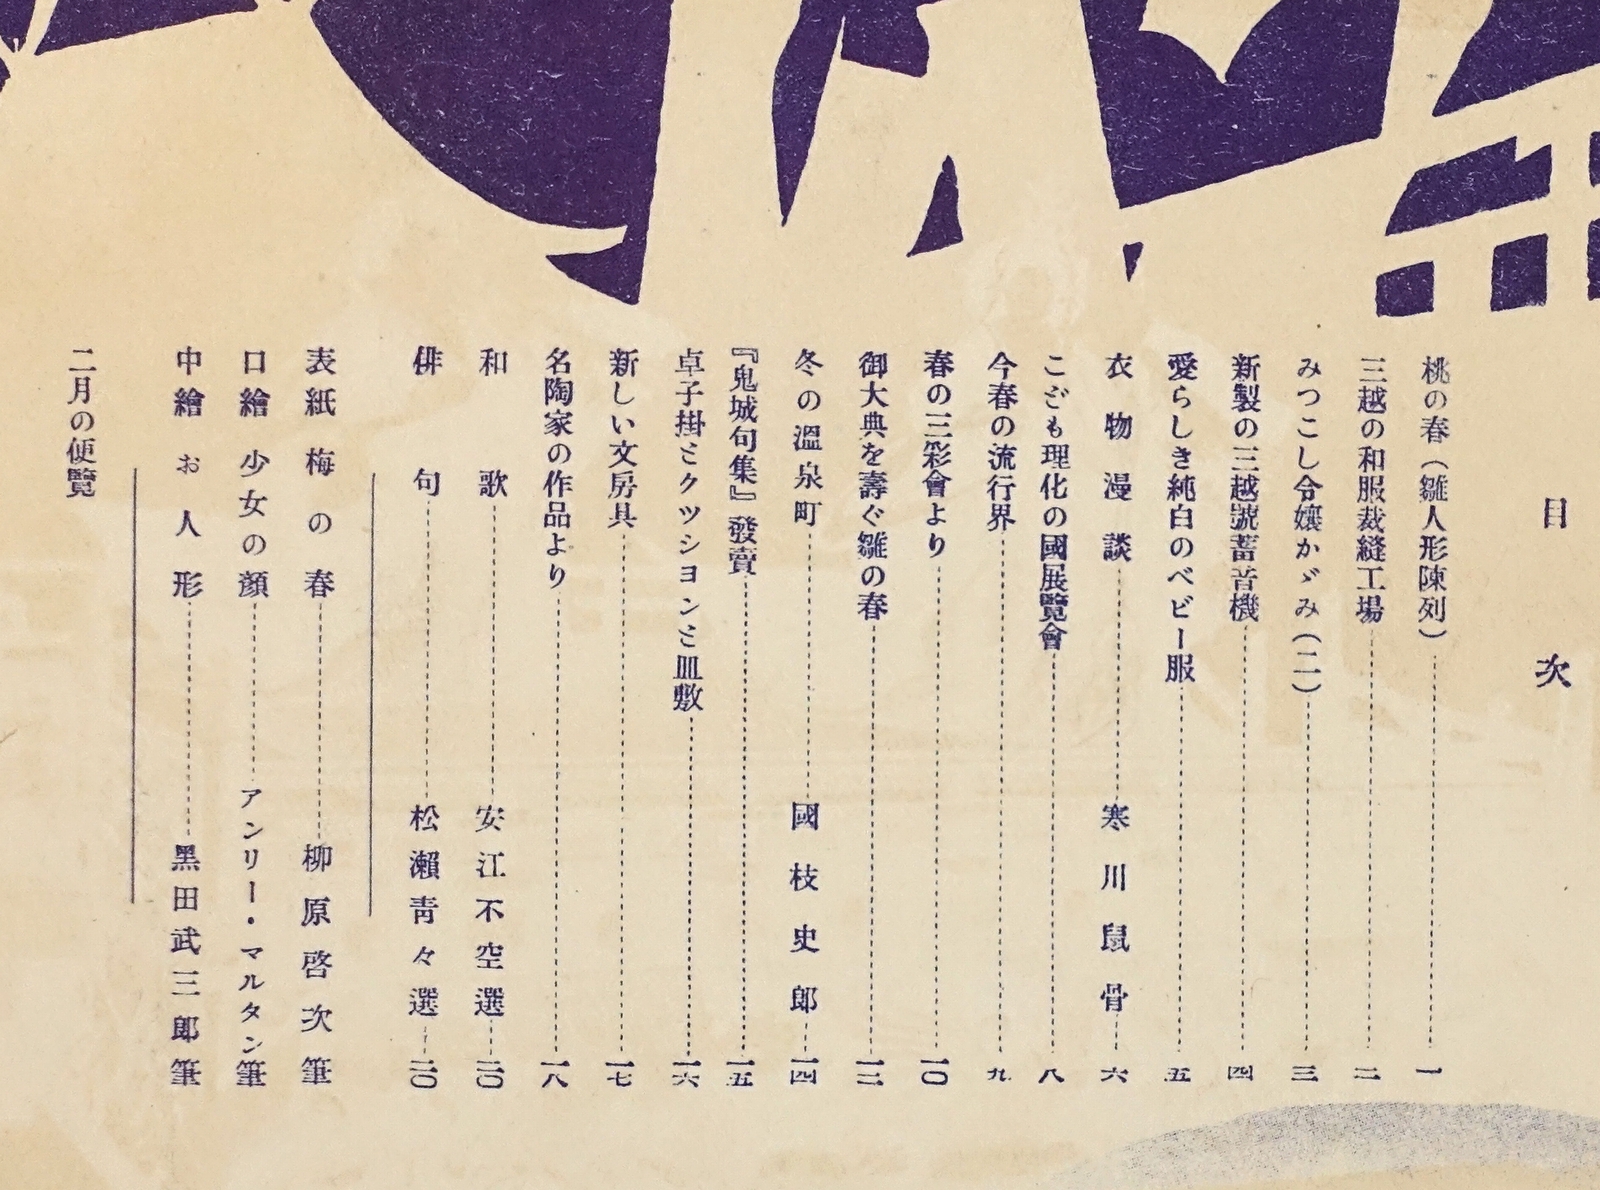 目次
桃の春（雛人形陳列） 一
三越の和服裁縫工場 二
みつこし令孃かゞみ（二） 三
新製の三越號蓄音機 四
愛らしき純白のベビー服 五
衣物漫談 寒川鼠骨 六
こども理化の國展覽會 八
今春の流行界 九
春の三彩會より 一〇
御大典を壽ぐ雛の春 一二
冬の溫泉町 國枝史郎 一四
『鬼城句集』發賣 一五
卓子掛とクッションと皿敷 一六
新しい文房具 一七
名陶家の作品より 一八
和歌 安江不空選 二〇
俳句 松瀨靑々選 二〇
表紙 梅の春 柳原啓次筆
口繪 少女の顏 アンリー・マルタン筆
中繪 お人形 黑田武三郎筆
二月の便覽